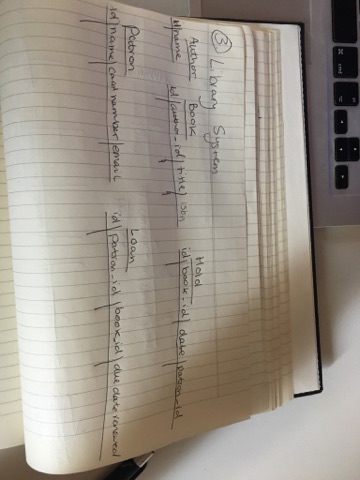 ③ Library System
Author
id|name
Book
id|author_id|title|isbn
Hold
id|book_id|date|patron_id
Patron
id|name|card number|email
Loan
id|patron_id|book_id|due date|renewed